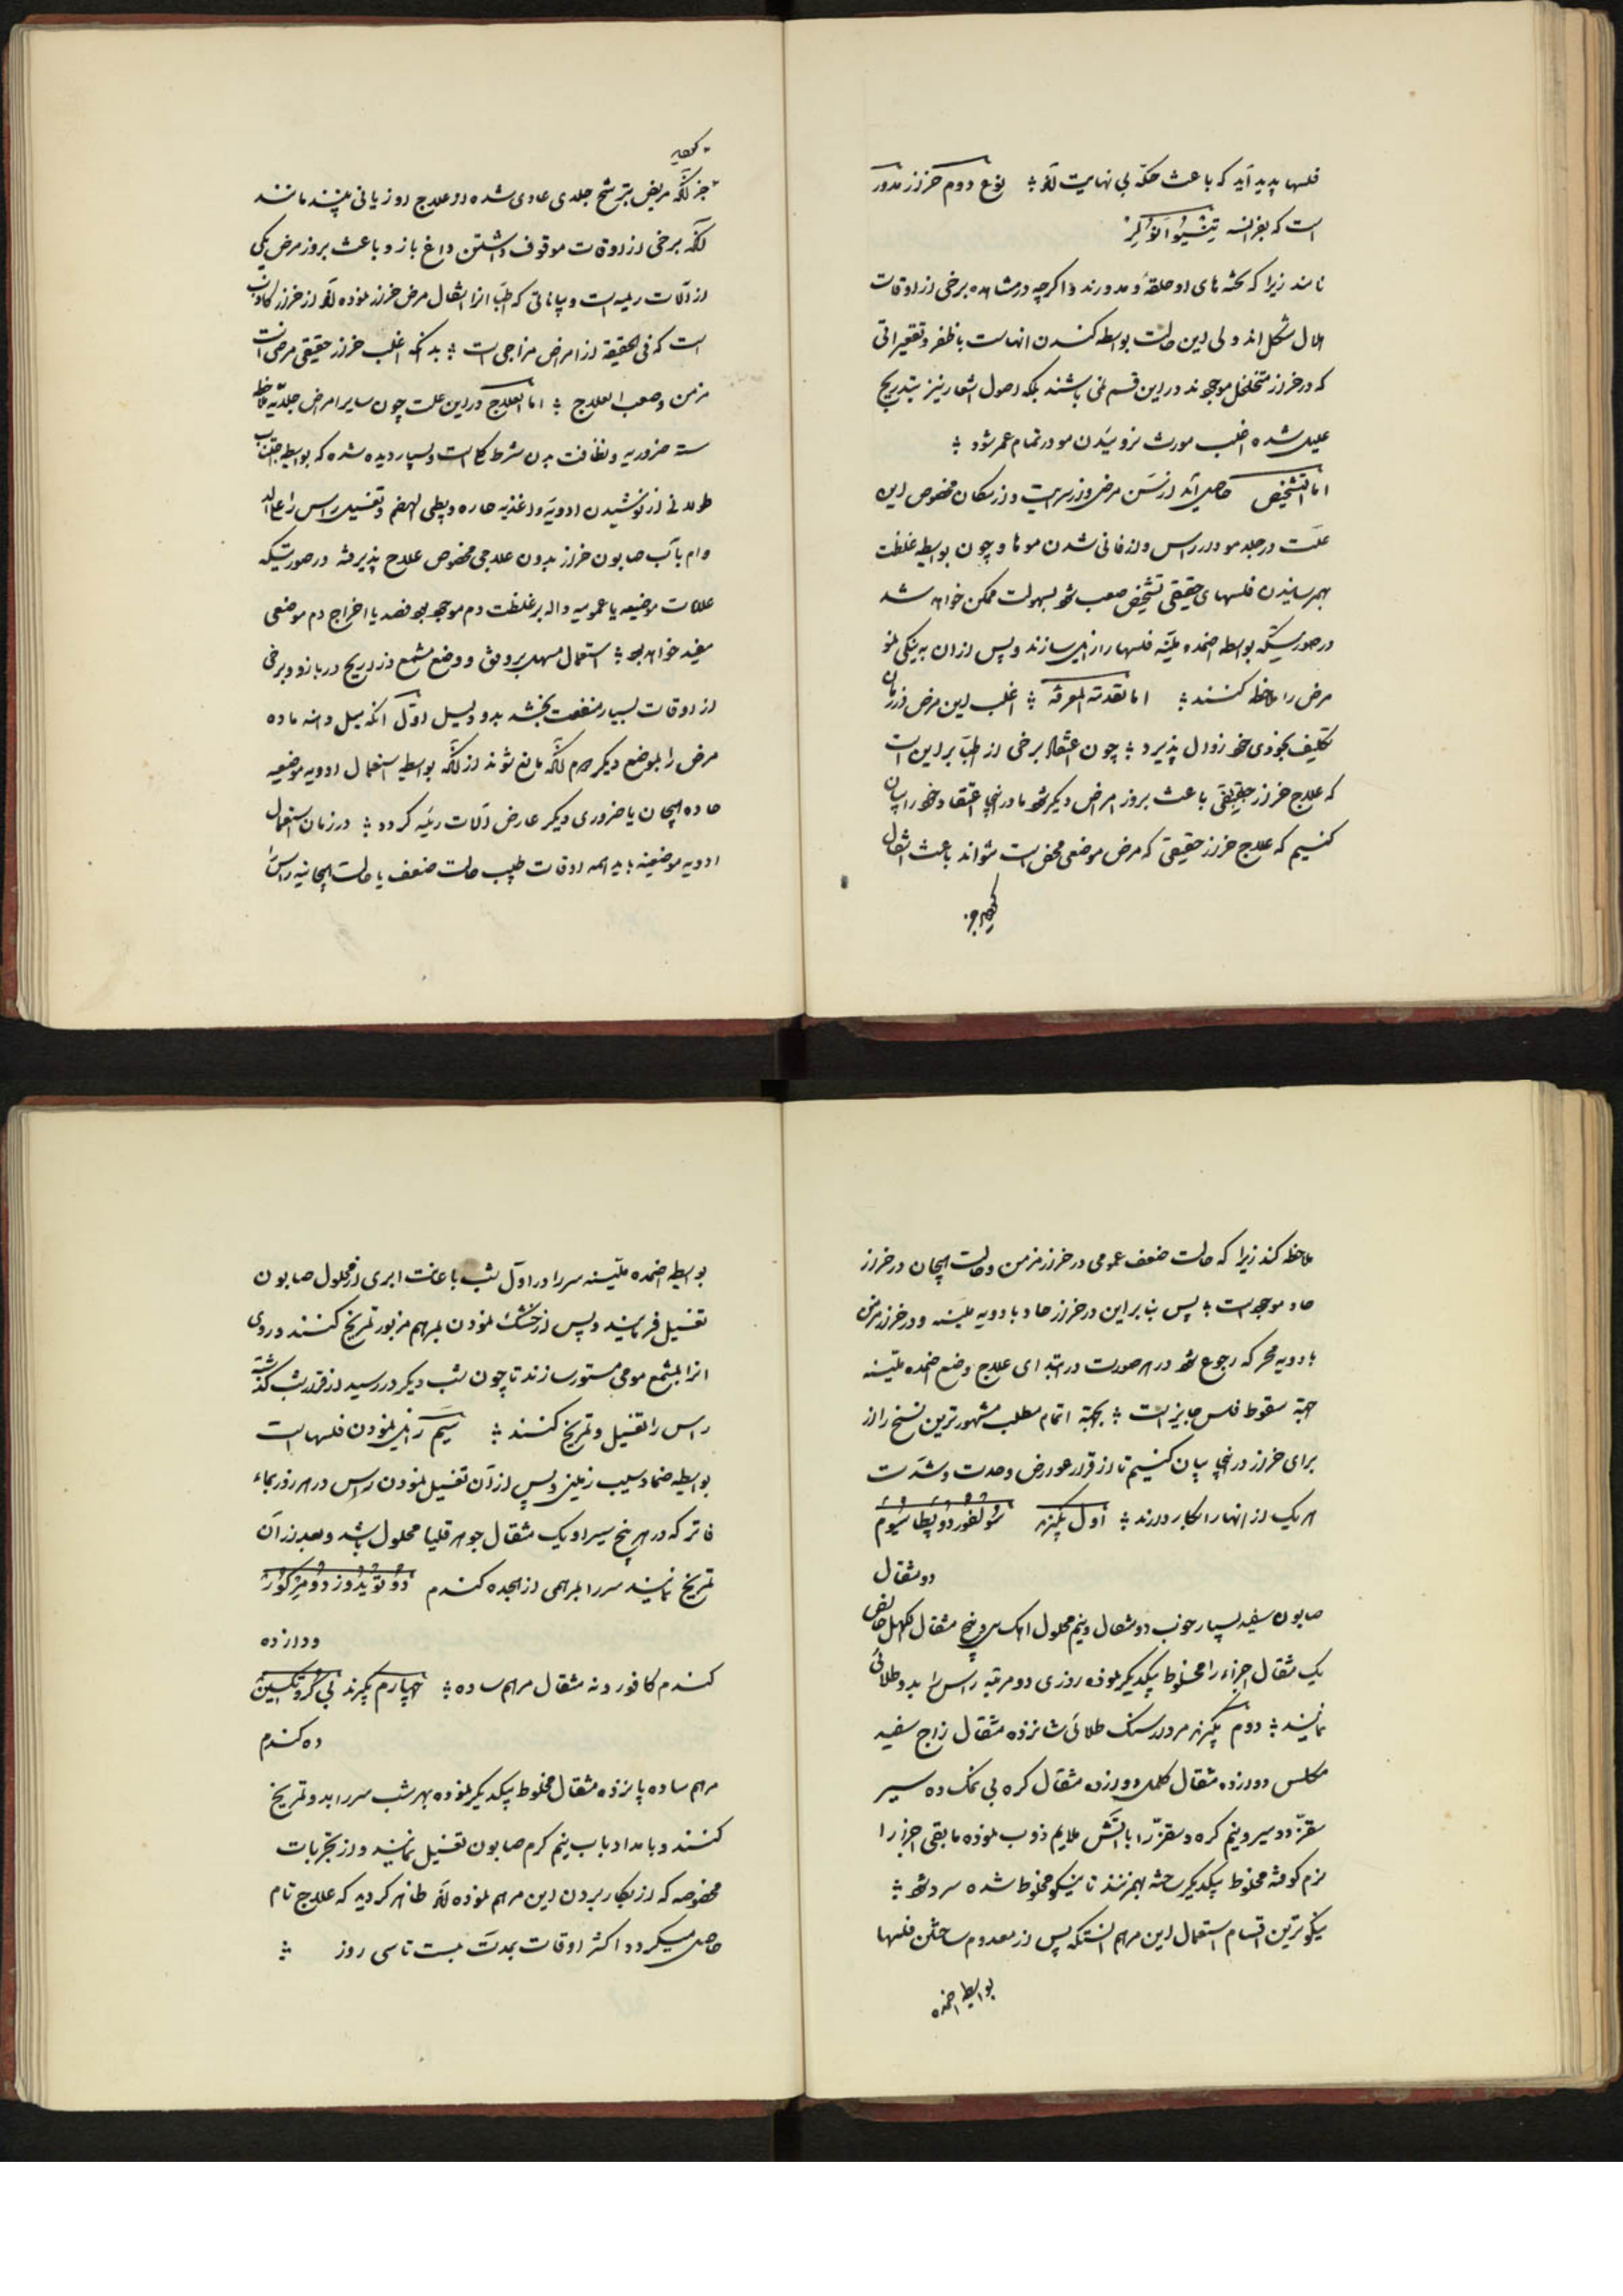 فلسها پدید آید که باعث حکّهٔ بی نهایت گردد ؛ نوع دوم حزاز مدور
است که بفرانسه
نامند زیرا که بخشه های او حلقهٔ و مدورند و اکرچه در مشاهده برخی از اوقات
هلال شکل اند ولی این حالت بواسطه کندن انهاست با ظفر و تقعیراتی
که در خراز متخلخل موجودند در این قسم نمی باشند بلکه اصول اشعار نیز بتدریج
علیل شده اغلب مورث نروئیدن مو در تمام عمر شود ؛
اما التشخیص حاصل آید از سن مرض و از سرایت و از مکان مخصوص این
علت در جلد مودار راس و از فانی شدن موها و چون بواسطه غلظت
بهم رسانیدن فلسهای حقیقی تشخیص صعب شود بسهولت ممکن خواهد شد
در صورتیکه بواسطه اضمده ملیّنه فلسها را زایل سازند و پس از ان به نیکی
مرض را ملاحظه کنند ؛ اما تقدمة المعرفه ؛ اغلب این مرض در زمان
تکلیف بخودی خود زوال پذیرد ؛ چون اعتقاد برخی از اطبا بر این است
که علاج خراز حقیقی باعث بروز امراض دیکر شود ما در اینجا اعتقاد خود را بیان
کنیم که علاج خراز حقیقی که مرض موضعی محض است نتواند باعث انتقال
جز انکه مریض بترشح جلدی عادی شده و از علاج او زیانی بیند مانند
انکه برخی از اوقات موقوف داشتن داغ بازو باعث بروز مرض یکی
از آلات رئیسه است و بیاناتی که اطبا از انتقال مرض خراز نموده اند از خراز کاذب
است که فی الحقیقه از امراض مزاجی است ؛ بدانکه اغلب خراز حقیقی مرضی است
مزمن و صعب العلاج ؛ اما العلاج در این علت چون سایر امراض جلدیه ملاحظه
سته ضروریه و نظافت بدن شرط کلی است و بسیار دیده شده که بواسطه اجتناب
طولانی از نوشیدن ادویه و اغذیه حاره و بطی الهضم و تغسیل راس را علی الدوام
وام بآب صابون خراز بدون علاجی مخصوص علاج پذیرفته در صورتیکه
علامات موضعیه یا عمومیه داله بر غلظت دم موجود بود فصد یا اخراج دم موضعی
مفید خواهد بود ؛ استعمال مسهل برونق و وضع مشمع ذراریح در بازو و برخی
از اوقات بسیار منفعت بخشد بدو دلیل اول انکه میل دهنه ماده
مرض را بموضع دیکر دوم انکه مانع شوند از انکه بواسطه استعمال ادویه موضعیه
حاده هیجان یا ضروری دیکر عارض آلات رئیسه کردد ؛ در زمان استعمال
ادویه موضعیه باید همه اوقات طبیب حالت ضعف یا حالت هیجانیه راس را
ملاحظه کند زیرا که حالت ضعف عمومی در خراز مزمن و حالت هیجان در خراز
حاد موجود است ؛ پس بنا بر این در خراز حاد بادویه ملینه و در خراز مزمن
بادویه محرکه رجوع شود در هر صورت در ابتدای علاج وضع اضمده ملینه
جهة سقوط فلس جایز است ؛ بجهة اتمام مطلب مشهورترین نسخ را از
برای خراز در اینجا بیان کنیم تا از قرار عوارض و حدت و شدت
هر یک از انها را بکار دارند ؛ اول بکیرند سولفور دو پطاسیوم
دو مثقال
صابون سفید بسیار خوب دو مثقال و نیم محلول اهک سی و پنج مثقال الکهل خالص
یک مثقال اجزاء را مخلوط بیکدیکر نموده روزی دو مرتبه راس را بدو طلائی
نمایند ؛ دوم بکیرند مردارسنک طلائی شانزده مثقال زاج سفید
مکلس دوازده مثقال کلمل دوازده مثقال کره بی نمک ده سیر
سقز دو سیر و نیم کره و سقز را با اتش ملایم ذوب نموده مابقی اجزا را
نرم کوفته مخلوط بیکدیکر ساخته بهم زنند تا نیکو مخلوط شده سرد شود ؛
نیکوترین اقسام استعمال این مرهم انستکه پس از معدوم ساختن فلسها
بواسطه اضمده
بواسطه اضمده ملینه سر را در اول شب باعانت ابری از محلول صابون
تغسیل فرمایند و پس از خشک نمودن بمرهم مزبور تمریخ کنند و روی
انرا بمشمع مومی مستور سازند تا چون شب دیکر در رسید از قرار شب کذشته
راس را تغسیل و تمریخ کنند ؛ سیم زایل نمودن فلسها است
بواسطه ضماد سیب زمینی و پس از آن تغسیل نمودن راس در هر روز بماء
فاتر که در هر پنج سیر او یک مثقال جوهر قلیا محلول باشد و بعد از آن
تمریخ نمایند سر را بمرهمی از هجده کندم دوتویدوز دو مرکور
دوازده
کندم کافور و نه مثقال مرهم ساده ؛ چهارم بکیرند
ده کندم
مرهم ساده پانزده مثقال مخلوط بیکدیکر نموده بهر شب سر را بدو تمریخ
کنند و بامداد باب نیم کرم صابون تغسیل نمایند و از تجربات
مخصوصه که از بکار بردن این مرهم نموده اند ظاهر کردید که علاج تام
حاصل میکردد اکثر اوقات بمدت بیست تا سی روز ؛